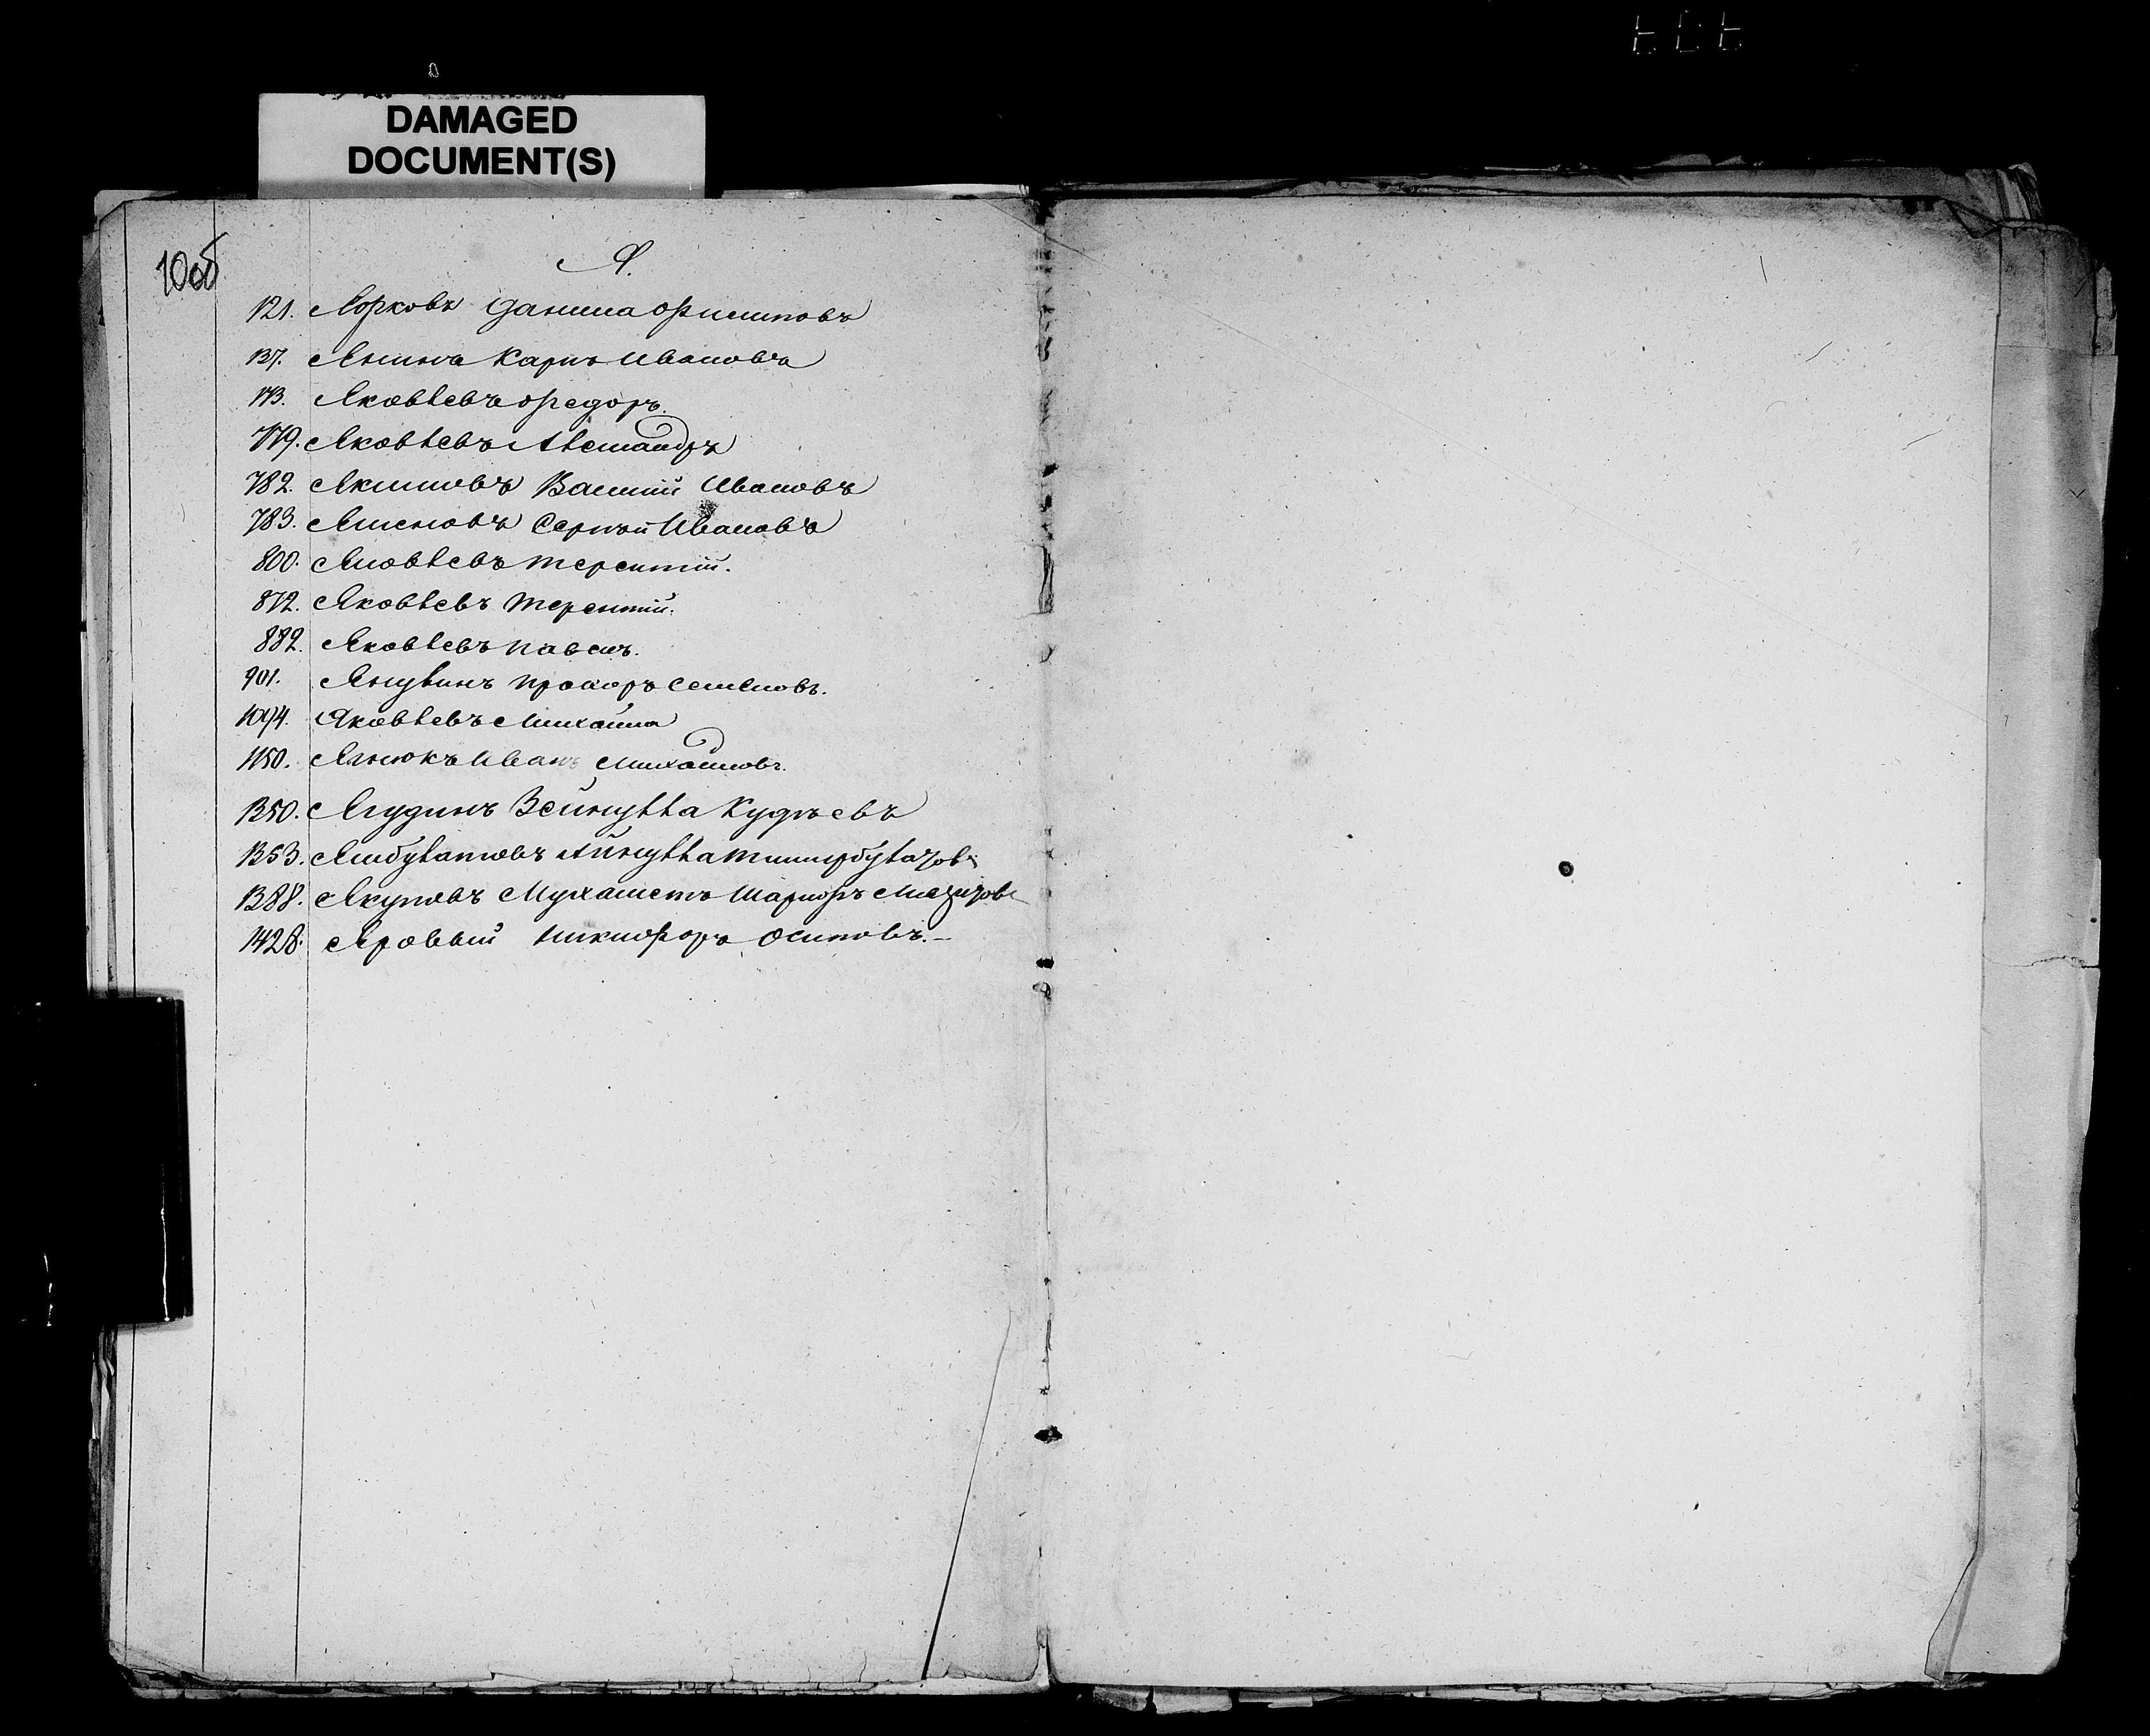 DAMAGED
DOCUMENT(S)
10об
Я.
121. Ярковъ Данила Филиповъ
137. Янинъ Карпъ Ивановъ
173. Яковлевъ Федоръ.
779. Яковлевъ Александръ
782. Якимовъ Василій Ивановъ
783. Сергѣй Ивановъ
800. Яковлевъ Терентій.
872. Яковлевъ Терентій.
882. Яковлевъ Павелъ.
901. Прохоръ Семеновъ.
1094. Яковлевъ Михаила
1150. Иванъ Михайловъ.
1350. Ягудинъ Зейнулла Кудѣевъ
1353. Яибулатовъ Айнулла
1388. Якуповъ Мухаметъ Шарифъ
1428. Яровый Никифоръ Осиповъ.-